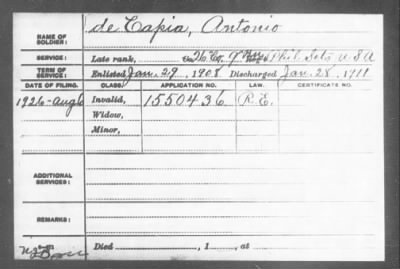 NAME OF SOLDIER: de Capia, Antonio
SERVICE: Late rank, Co. H, 9" Bn Phil. Scts U.S.A
TERM OF SERVICE: Enlisted Jan. 29, 1908 Discharged Jan. 28, 1911
DATE OF FILING. CLASS. APPLICATION NO. LAW. CERTIFICATE NO.
1926-Aug 6 Invalid, 1550436 R.E.
Widow,
Minor,
ADDITIONAL SERVICES:
REMARKS:
Died , 1 , at